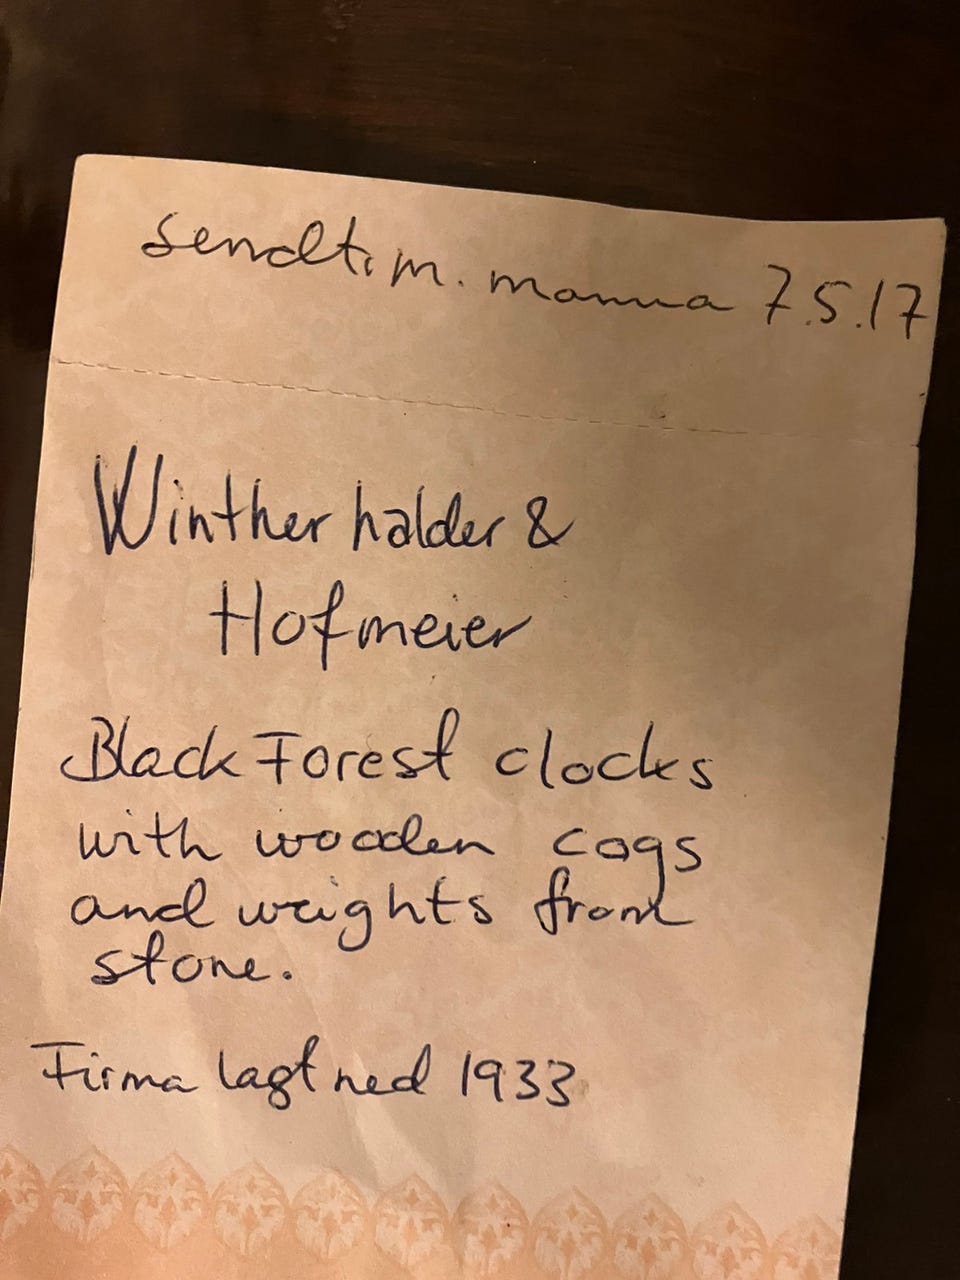 sendt i m. mamma 7.5.17
Winther halder &
Hofmeier
Black Forest clocks
with wooden cogs
and weights from
stone.
Firma lagt ned 1933